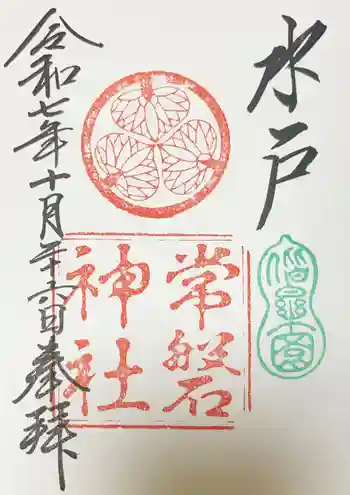 水戸
偕樂園
常磐
神社
令和七年十月二十六日奉拝